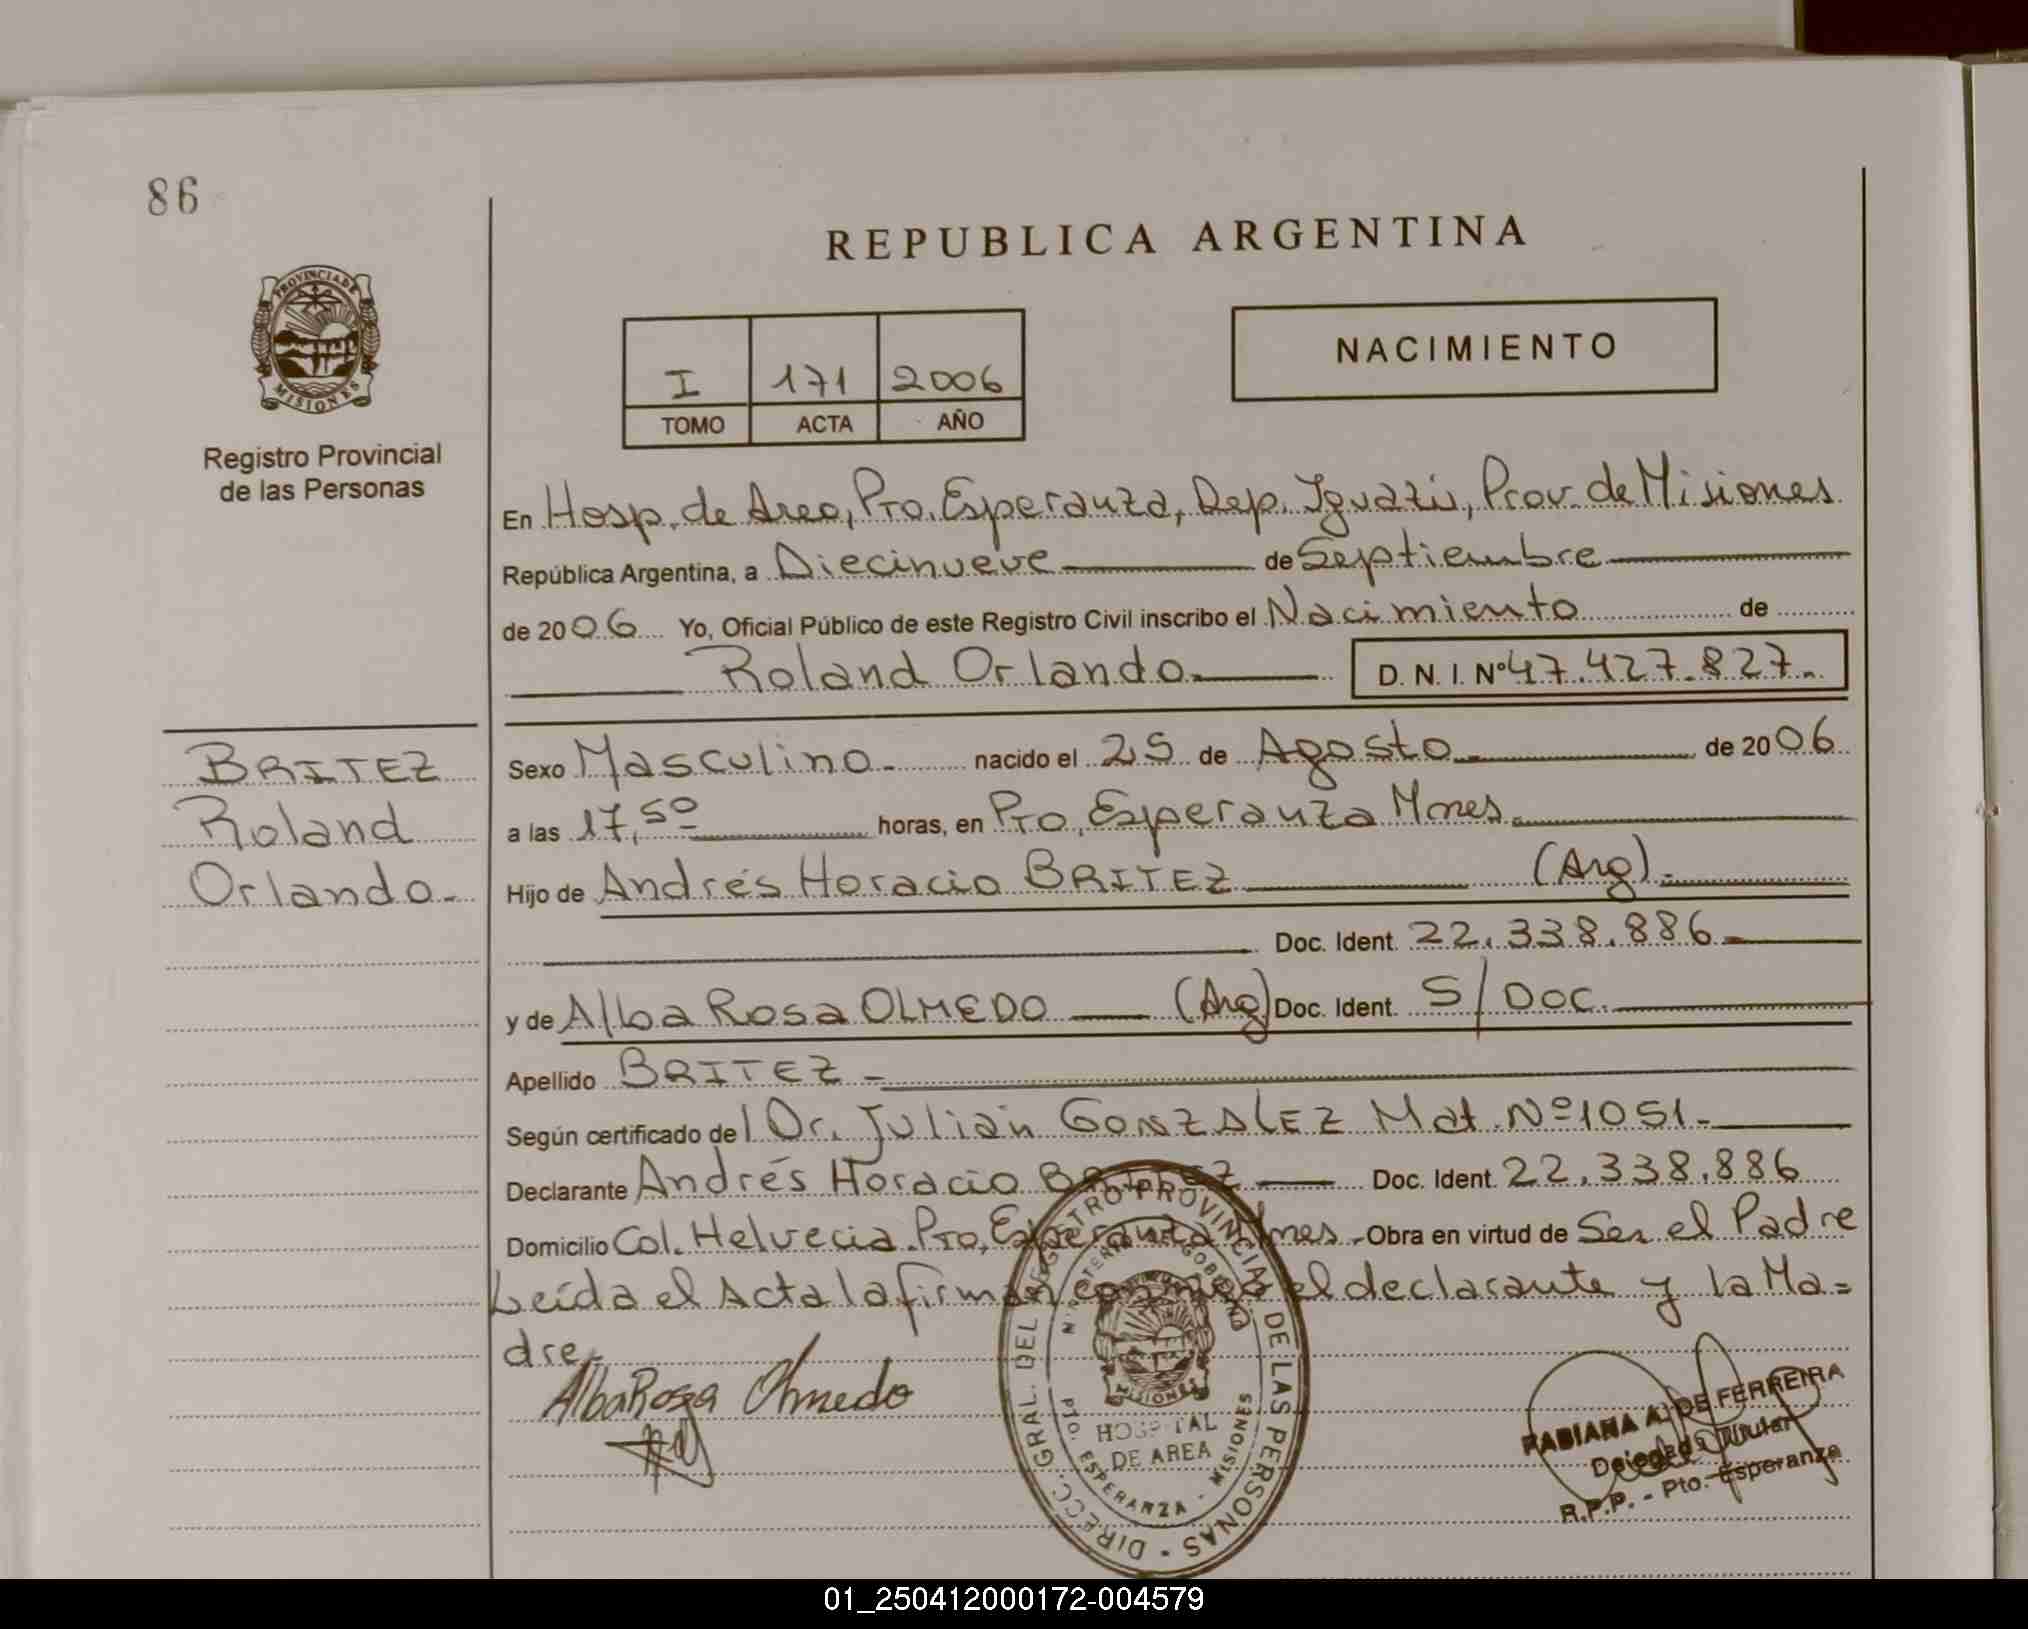 86
REPUBLICA ARGENTINA
PROVINCIA DE
MISIONES
Registro Provincial
de las Personas
I 171 2006
TOMO ACTA AÑO
NACIMIENTO
En Hosp. de Area, Pto. Esperanza, Dep. Iguazú, Prov. de Misiones
República Argentina, a Diecinueve de Septiembre
de 2006 Yo, Oficial Público de este Registro Civil inscribo el Nacimiento de
Roland Orlando D.N.I. Nº 47.427.827.-
BRITEZ
Roland
Orlando.-
Sexo Masculino.- nacido el 25 de Agosto de 2006
a las 17,50 horas, en Pto. Esperanza Mnes.
Hijo de Andrés Horacio BRITEZ (Arg).-
Doc. Ident. 22.338.886.-
y de Alba Rosa OLMEDO (Arg) Doc. Ident. S/Doc.
Apellido BRITEZ.-
Según certificado del Dr. Julián GONZALEZ Mat. Nº 1051.-
Declarante Andrés Horacio BRITEZ Doc. Ident. 22.338.886
Domicilio Col. Helvecia. Pto. Esperanza Mnes.- Obra en virtud de Ser el Padre
Leída el Acta la firman conmigo el declarante y la Ma=
dre.-
Alba Rosa Olmedo
DIRECC. GRAL. DEL REGISTRO PROVINCIAL DE LAS PERSONAS -
MINISTERIO DE GOBIERNO
MISIONES
HOSPITAL
DE AREA
PTO. ESPERANZA - MISIONES
FABIANA A. DE FERREIRA
Delegada Titular
R.P.P. - Pto. Esperanza
01_250412000172-004579